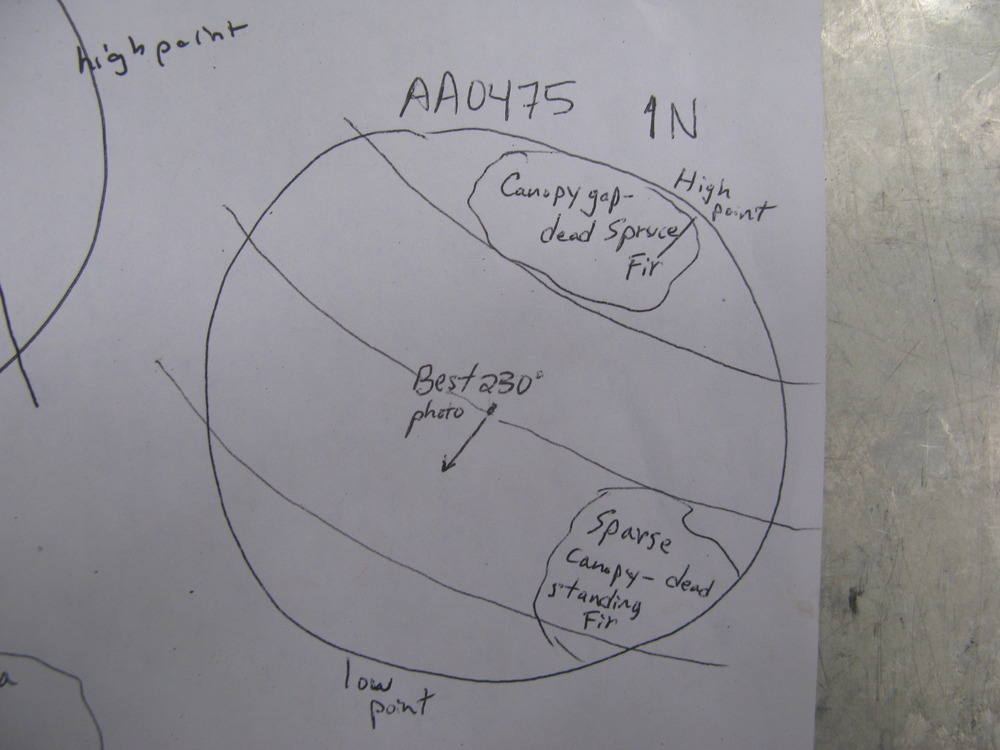 highpoint
AA0475 1N
High
point
Canopy gap-
dead Spruce
Fir
Best 230°
photo
Sparse
Canopy- dead
standing
Fir
low
point
a